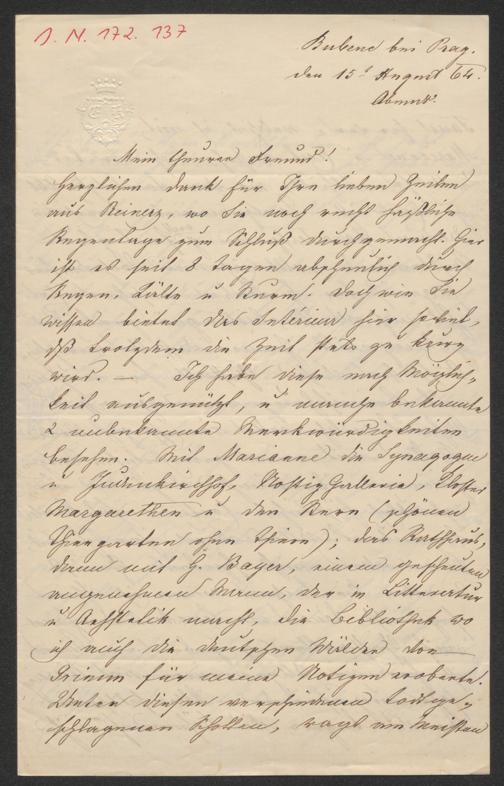 J. N. 172.137
Bubenc bei Prag.
den 15t August 64.
Abends.
Mein theurer Freund!
Herzlichen Dank für Ihre lieben Zeilen
aus Reinerz, wo Sie noch recht häßliche
Regentage zum Schluß durchgemacht. Hier
ist es seit 8 Tagen abscheulich durch
Regen, Kälte u Sturm. Doch wie Sie
wissen bietet das Intérieur hier soviel,
dß trotzdem die Zeit stets zu kurz
wird. — Ich habe diese nach Möglich-
keit ausgenützt, u manche bekannte
2 unbekannte Merkwürdigkeiten
besehen. Mit Marianne die Synagoge
u Judenkirchhof, Nostiz Gallerie, Kloster
Margarethen u den Stern (schönen
Thiergarten ohne Thiere); das Rathhaus,
dann mit H. Bayer, einem gescheuten
angenehmen Mann, der in Litteratur
u Aesthetik macht, die Bibliothek wo
ich auch die deutschen Wälder von
Grimm für meine Notizen eroberte.
Unter diesen verschiedenen todtge-
schlagenen Stollen, ragt am Meisten